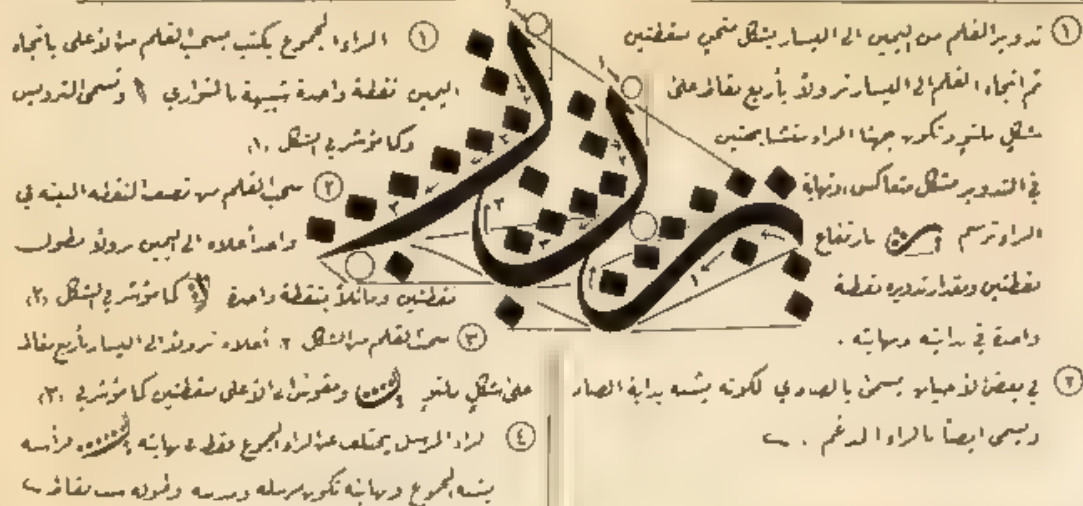 ① تدوير القلم من اليمين الى اليسار بشكل منحني بنقطتين
ثم اتجاه القلم الى اليسار نزولاً بأربع نقاط على
شكل ملتوٍ وتكون جهتا الراء متشابهتين
في التدوير بشكل متعاكس، ونهاية
الراء ترسم بارتفاع
نقطتين ومقدار تدويره نقطة
واحدة في بدايته ونهايته .
② في بعض الأحيان يسمى بالصادي لكونه يشبه بداية الصاد
ويسمى ايضاً بالراء المدغم .
① الراء المجموع يكتب بسحب القلم من الأعلى باتجاه
اليمين نقطة واحدة شبيهة بالشواري وتسمى الترويس
وكما مؤشر في الشكل (١)
② سحب القلم من نصف النقطة المبينة في
واحد أعلاه الى اليمين نزولاً بطول
نقطتين ومائلاً بنقطة واحدة كما مؤشر في الشكل (٢)
③ سحب القلم من الشكل ٢ أعلاه نزولاً الى اليسار بأربع نقاط
على شكل ملتوٍ ومقوس الى الأعلى بنقطتين كما مؤشر في (٣)
④ الراء المرسل يختلف عن الراء المجموع فقط في نهايته فرأسه
يشبه المجموع ونهايته تكون مرسلة وطوله ست نقاط